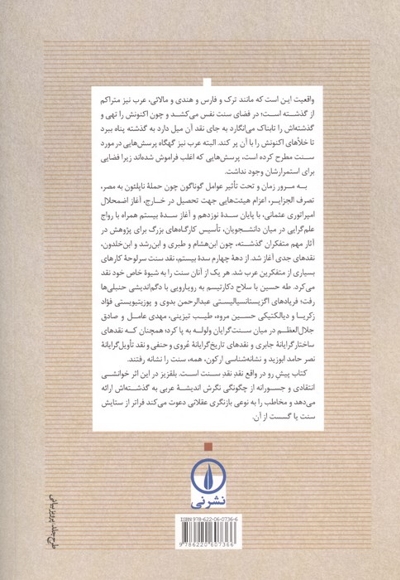 واقعیت این است که مانند ترک و فارس و هندی و مالاتی، عرب نیز متراکم
از گذشته است؛ در فضای سنت نفس می‌کشد و چون اکنونش را تهی و
گذشته‌اش را تابناک می‌انگارد به جای نقد آن میل دارد به گذشته پناه ببرد
تا خلأهای اکنونش را با آن پر کند. البته عرب نیز گهگاه پرسش‌هایی در مورد
سنت مطرح کرده است، پرسش‌هایی که اغلب فراموش شده‌اند زیرا فضایی
برای استمرارشان وجود نداشت.
به مرور زمان و تحت تأثیر عوامل گوناگون چون حملهٔ ناپلئون به مصر،
تصرف الجزایر، اعزام هیئت‌هایی جهت تحصیل در خارج، آغاز اضمحلال
امپراتوری عثمانی، با پایان سدهٔ نوزدهم و آغاز سدهٔ بیستم همراه با رواج
علم‌گرایی در میان دانشجویان، تأسیس کارگاه‌های بزرگ برای پژوهش در
آثار مهم متفکران گذشته، چون ابن‌هشام و طبری و ابن‌رشد و ابن‌خلدون،
نقدهای جدی آغاز شد. از دههٔ چهارم سدهٔ بیستم، نقد سنت سرلوحهٔ کارهای
بسیاری از متفکرین عرب شد. هر یک از آنان سنت را به شیوهٔ خاص خود نقد
می‌کرد. طه حسین با سلاح دکارتیسم به رویارویی با دگم‌اندیشی حنبلی‌ها
رفت؛ فریادهای اگزیستانسیالیستی عبدالرحمن بدوی و پوزیتیویستی فؤاد
زکریا و دیالکتیکی حسین مروه، طیب تیزینی، مهدی عامل و صادق
جلال‌العظم در میان سنت‌گرایان ولوله به پا کرد؛ همچنان که نقدهای
ساختارگرایانهٔ جابری و نقدهای تاریخ‌گرایانهٔ عُروی و حنفی و نقد تأویل‌گرایانهٔ
نصر حامد ابوزید و نشانه‌شناسی ارکون، همه، سنت را نشانه رفتند.
کتاب پیش رو در واقع نقدِ نقدِ سنت است. بلقزیز در این اثر خوانشی
انتقادی و جسورانه از چگونگی نگرش اندیشهٔ عربی به گذشته‌اش ارائه
می‌دهد و مخاطب را به نوعی بازنگری عقلانی دعوت می‌کند فراتر از ستایش
سنت یا گسست از آن.
نشر نی
ISBN: 978-622-06-0136-6
9 786220 601366
طرح جلد: پرویز بیانی